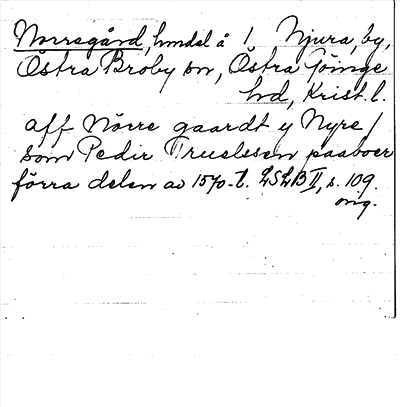 Norregård, hmdel å 1 Njura, by,
Östra Broby sn, Östra Göinge
hd, Krist. l.
aff Nörre gaardt y Nyre /
som Pedir Truelssen paaboer
förra delen av 1570-t. LSLB II, s. 109.
orig.